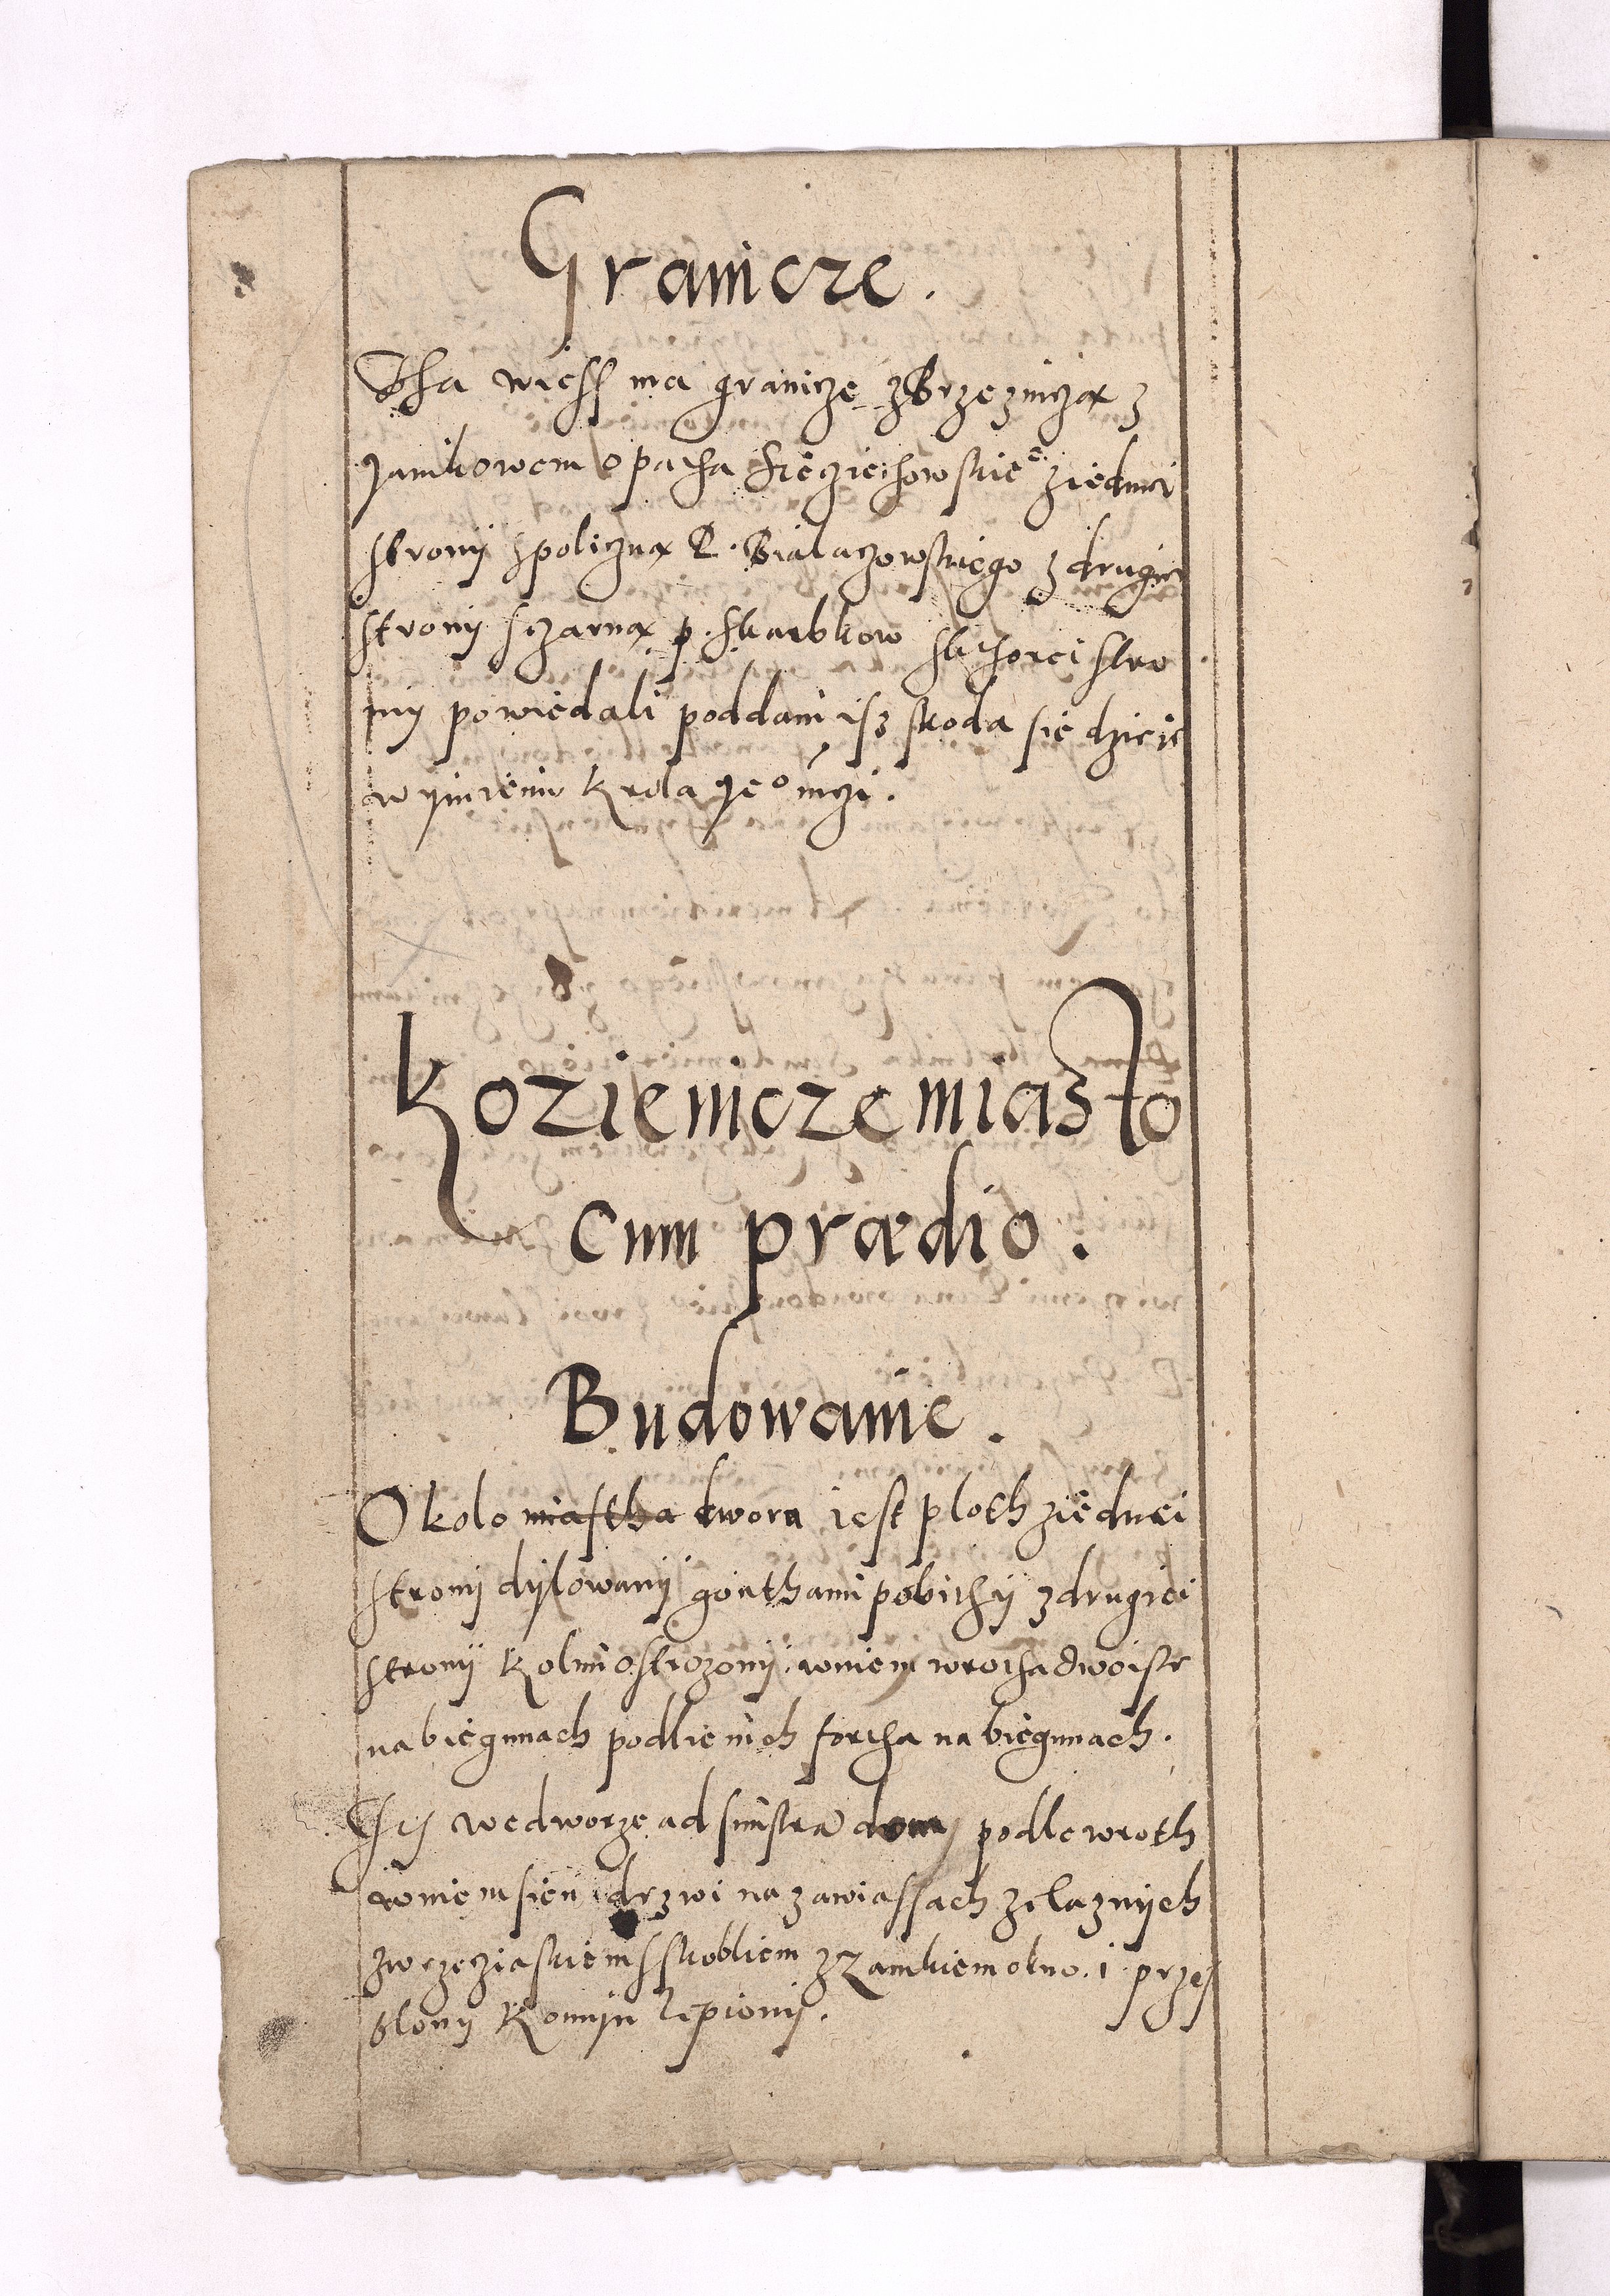 Granicze.
Tha wiess ma granicze z Brzeznicza z
Janikowem opatha Sieciechowskie° ziednei
strony spoliczna P. Bialaczowskiego z drugiei
strony sczarna p. Skarbkow skthorei stro
ny powiedali poddani isz skoda sie dzieie
w ymieniu Krola Je° mczi.
Koziemcze miasto
cum prædio.
Budowanie.
Okolo miastha dwora iest ploth ziednei
strony dylowany gonthami pobithy z drugiei
strony Kolmi ostrozony, wniem wrotha dwoiste
na biegunach podlie nich fortha na biegunach.
Jest we dworze ad sinistra dom podle wroth
wniem sien drzwi na zawiassach zelaznych
zwrzeciaskiem sskobliem z zamkiem okno. 1. przes
blony Komyn lepiony.